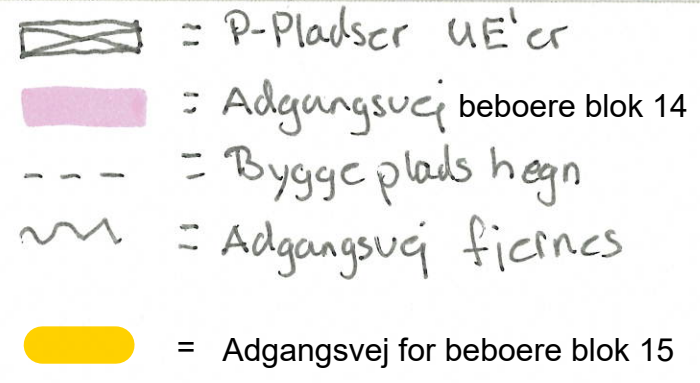 = P-Pladser UE'er
= Adgangsvej beboere blok 14
= Byggeplads hegn
= Adgangsvej fjernes
= Adgangsvej for beboere blok 15